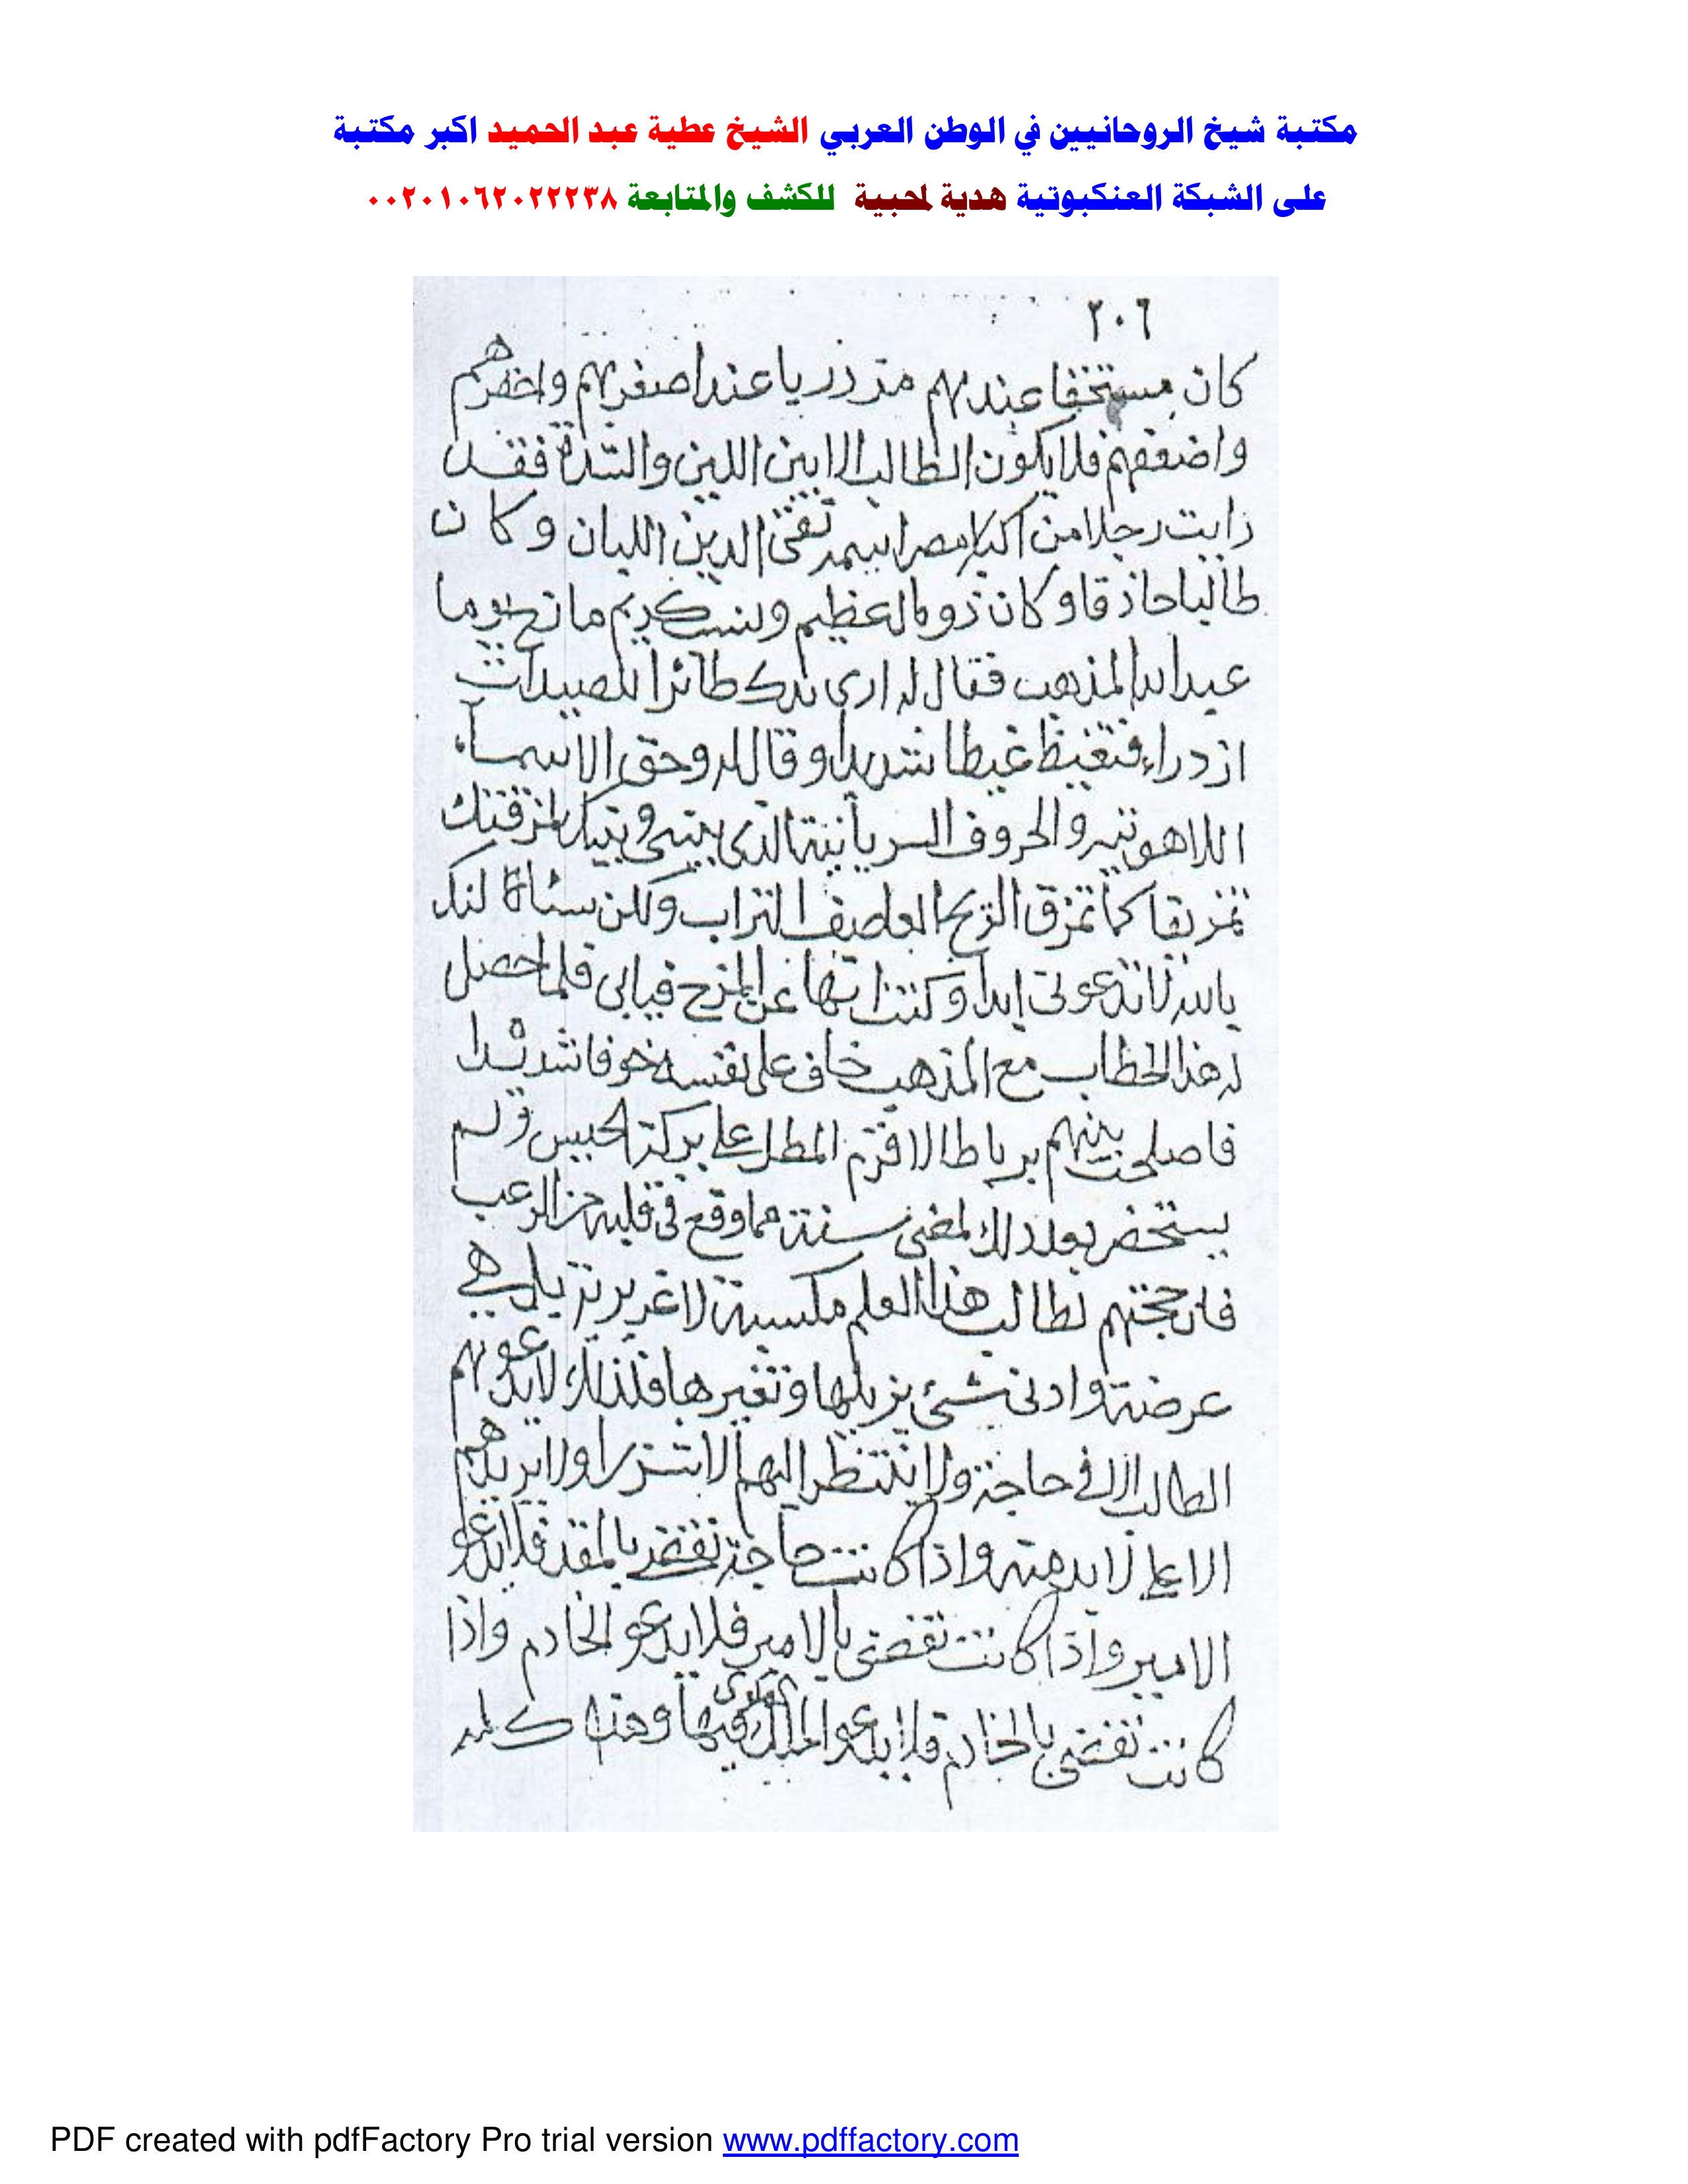 مكتبة شيخ الروحانيين في الوطن العربي الشيخ عطية عبد الحميد اكبر مكتبة
على الشبكة العنكبوتية هدية لمحبية للكشف والمتابعة ٠٠٢٠١٠٦٢٠٢٢٢٣٨
٢٠٦
كان مستخفا عندهم مزدريا عند اصغرهم واحقرهم
واضعفهم فلا يكون الطالب الا بين اللين والشدة فقد
رايت رجلا من اكابر مصر اسمه تقى الدين اللبان وكان
طالبا حاذقا وكان ذو مال عظيم ونسب كريم مازح يوما
عبد الله المذهب فقال له ارى بدك طائرا للصيد
ازدراء فتغيظ غيظا شديدا وقال له وحق الاسماء
اللاهوتيه والحروف السريانية الذى بينى وبينك لمزقتك
تمزيقا كما تمزق الريح العاصف التراب ولكن
بالله لا تدعونى ابدا وكنت عن المزح فيابى فلما حصل
له هذا الخطاب مع المذهب خاف على نفسه خوفا شديدا
فاصلحت بينهم برباط الافرم المطل على بركة الحبيس ولم
يستحضر بعد ذلك لمضى سنة مما وقع فى قلبه من الرعب
فان لطالب هذا العلم مكسبة لا غريزية بل هي
عرضة وادنى شئ يزيلها وتغيرها فلذلك لا يدعوهم
الطالب الا في حاجة ولا ينتظر اليهم الا شزرا ولا يريدهم
الا على لابد منه واذا كانت حاجة تقضى فلا يدعو
الامير واذا كانت تقضى بالامير فلا يدعو الخادم واذا
كانت تقضى بالخادم فلا يدعو الملك فيها وهذا كله
PDF created with pdfFactory Pro trial version www.pdffactory.com